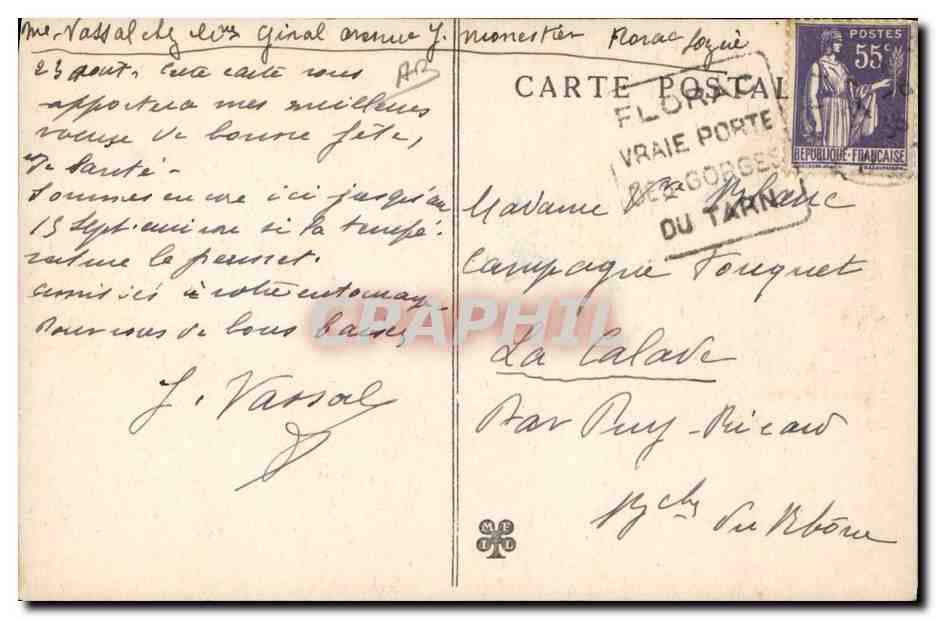 Me Vassal chez Mme Giral avenue J. Monestier Florac Lozère
23 aout. Cette carte vous
apportera mes meilleurs
voeux de bonne fête,
de santé -
Sommes encore ici jusqu'au
15 Sept. environ si la tempé-
rature le permet.
amitiés à votre entourage
Pour vous de bons baisers
J. Vassal
AR
CARTE POSTALE
FLORAC
VRAIE PORTE
DES GORGES
DU TARN
POSTES
55c
REPUBLIQUE FRANÇAISE
Madame Blanc
Campagne Fouquet
La Calade
Par Puy-Ricard
Bches du Rhône
CRAPHIL